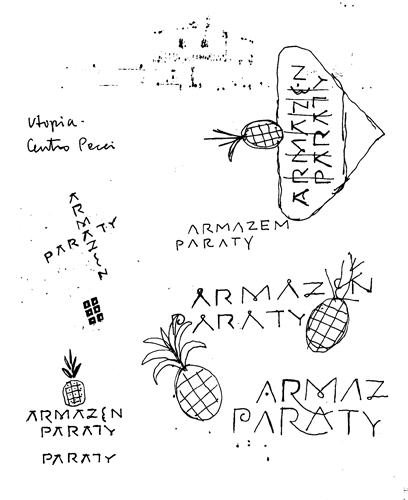 Utopia-
Centro Pecci
ARMAZEN
PARATY
ARMAZEN
PARATY
ARMAZEM
PARATY
ARMAZEN
PARATY
ARMAZ
PARATY
ARMAZEN
PARATY
PARATY